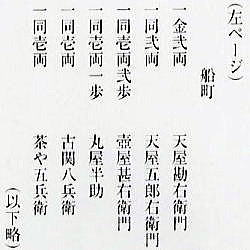 (左ページ)
船町
一金弐両 天屋勘右衛門
一同弐両 天屋五郎右衛門
一同壱両弐歩 壺屋甚右衛門
一同壱両一歩 丸屋半助
一同壱両 古関八兵衛
一同壱両 茶や五兵衛
(以下略)